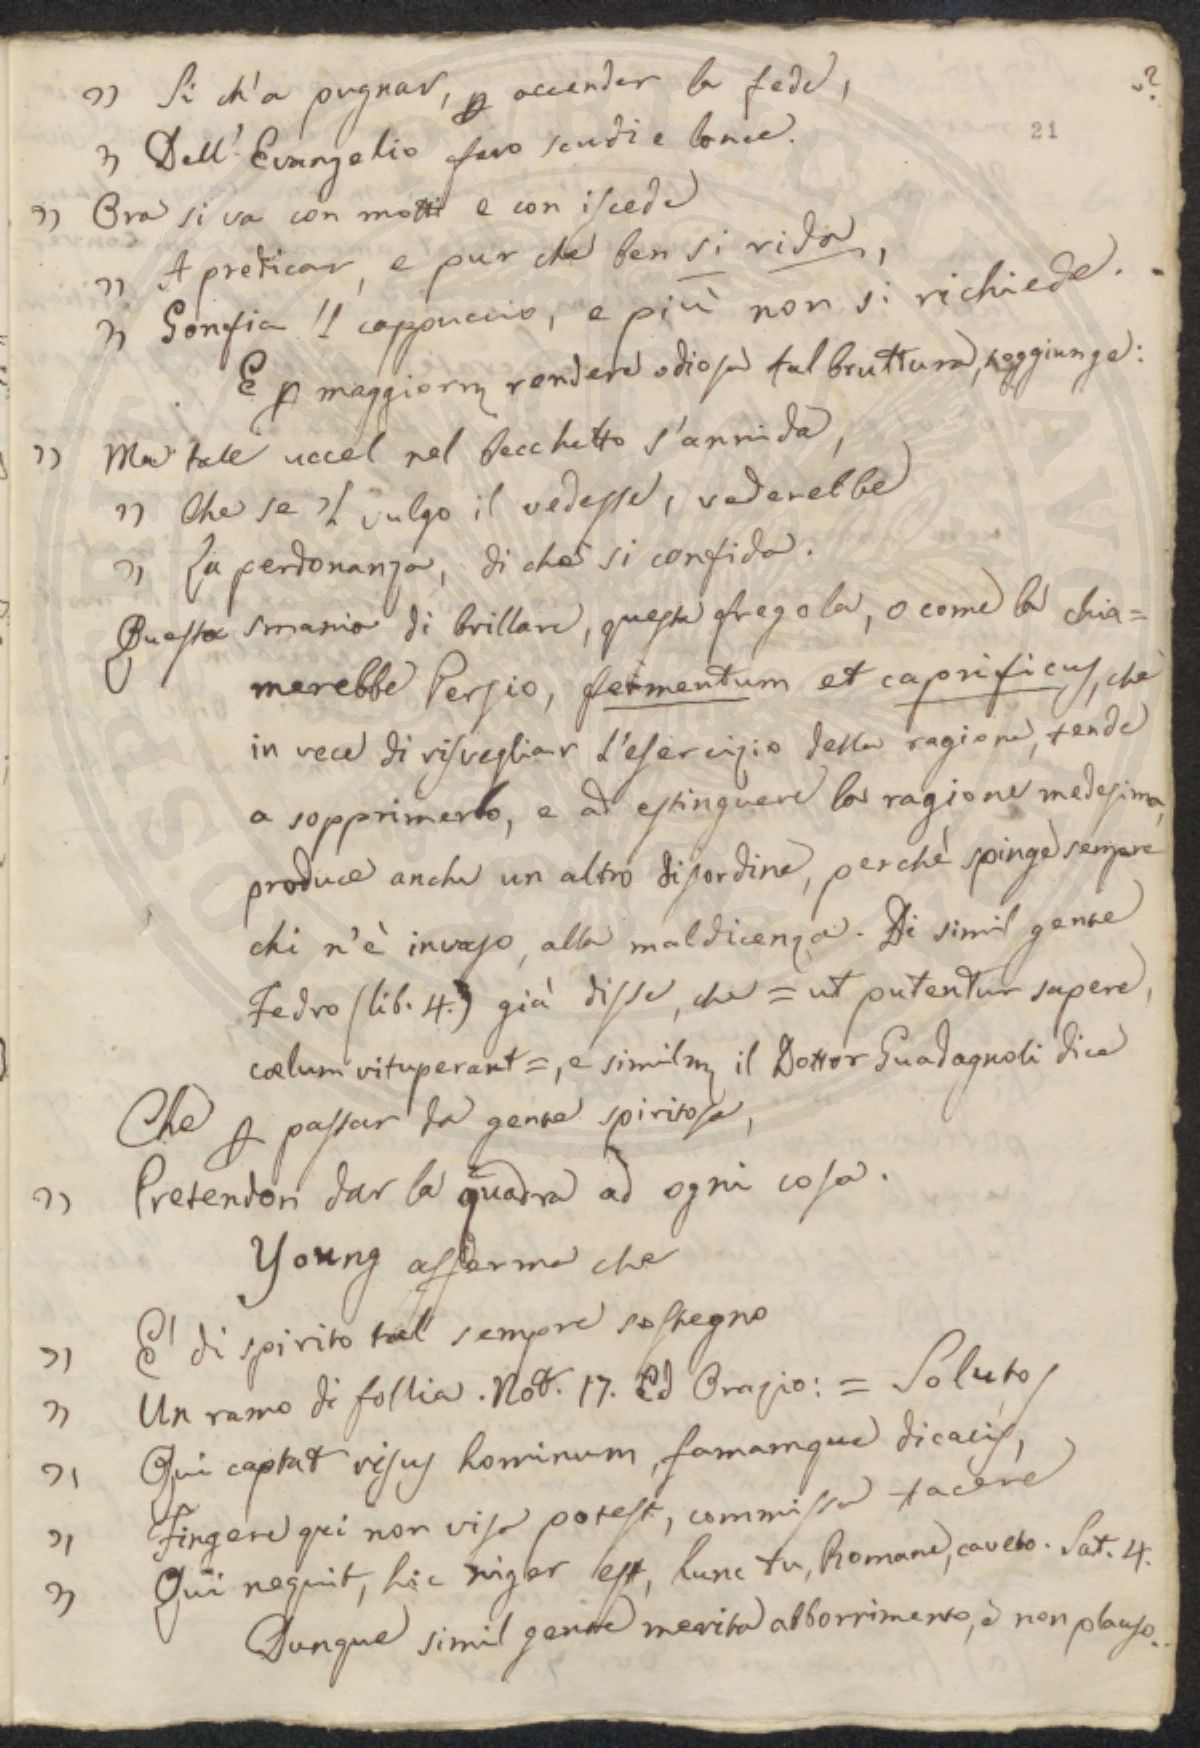 s?
21
" Si ch'a pugnar, p accender la fede,
" Dell'Evangelio fero scudi e lance.
" Ora si va con motti e con iscede
" A predicar, e pur che ben si rida,
" Gonfia 'l cappuccio, e più non si richiede.
E p maggiorm rendere odiosa tal bruttura, soggiunge:
" Ma tale uccel nel becchetto s'annida,
" Che se 'l vulgo il vedesse, vederebbe
" La perdonanza, di che si confida.
Questa smania di brillare, questa fregola, o come la chia=
merebbe Persio, fermentum et caprificus, che
in vece di risvegliar l'esercizio della ragione, tende
a sopprimerlo, e ad estinguere la ragione medesima,
produce anche un altro disordine, perchè spinge sempre
chi n'è invaso, alla maldicenza. Di simil gente
Fedro (lib. 4.) già disse, che = ut putentur sapere,
cœlum vituperant =, e similm il Dottor Guadagnoli dice
Che p passar da gente spiritosa,
" Pretendon dar la quadra ad ogni cosa.
Young afferma che
" E' di spirito tal sempre sostegno
" Un ramo di follia. Not. 17. Ed Orazio: = Solutos
" Qui captat risus hominum, famamque dicacis,
" Fingere qui non visa potest, commissa tacere
" Qui nequit, hic niger est, hunc tu, Romane, caveto. Sat. 4.
Dunque simil gente merita abborrimento, e non plauso.